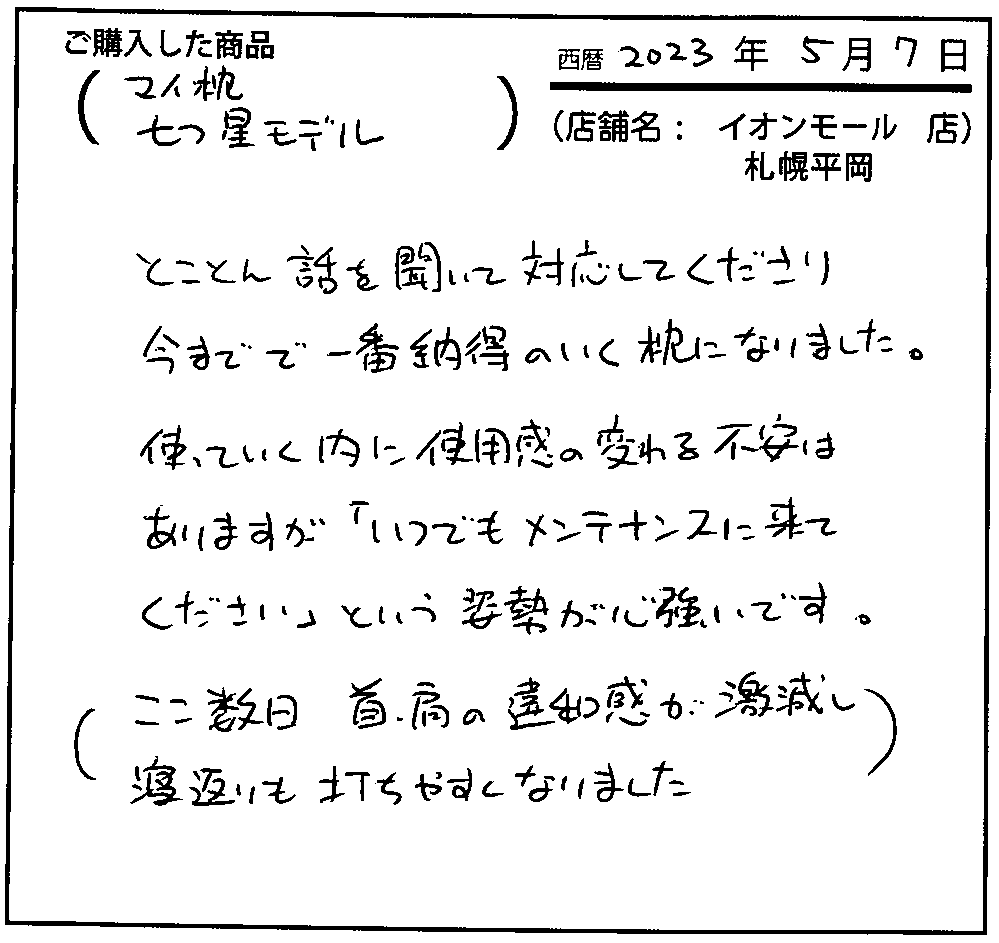 ご購入した商品
(マイ枕
七つ星モデル)
西暦 2023 年 5 月 7 日
(店舗名： イオンモール 店)
札幌平岡
とことん 話を 聞いて 対応してくださり
今までで 一番 納得 のいく 枕になりました。
使っていく 内に 使用感の 変わる 不安は
ありますが「いつでも メンテナンスに 来て
ください」という 姿勢が心強いです。
(ここ 数日 首・肩の 違和感が 激減し
寝返りも 打ちやすくなりました)